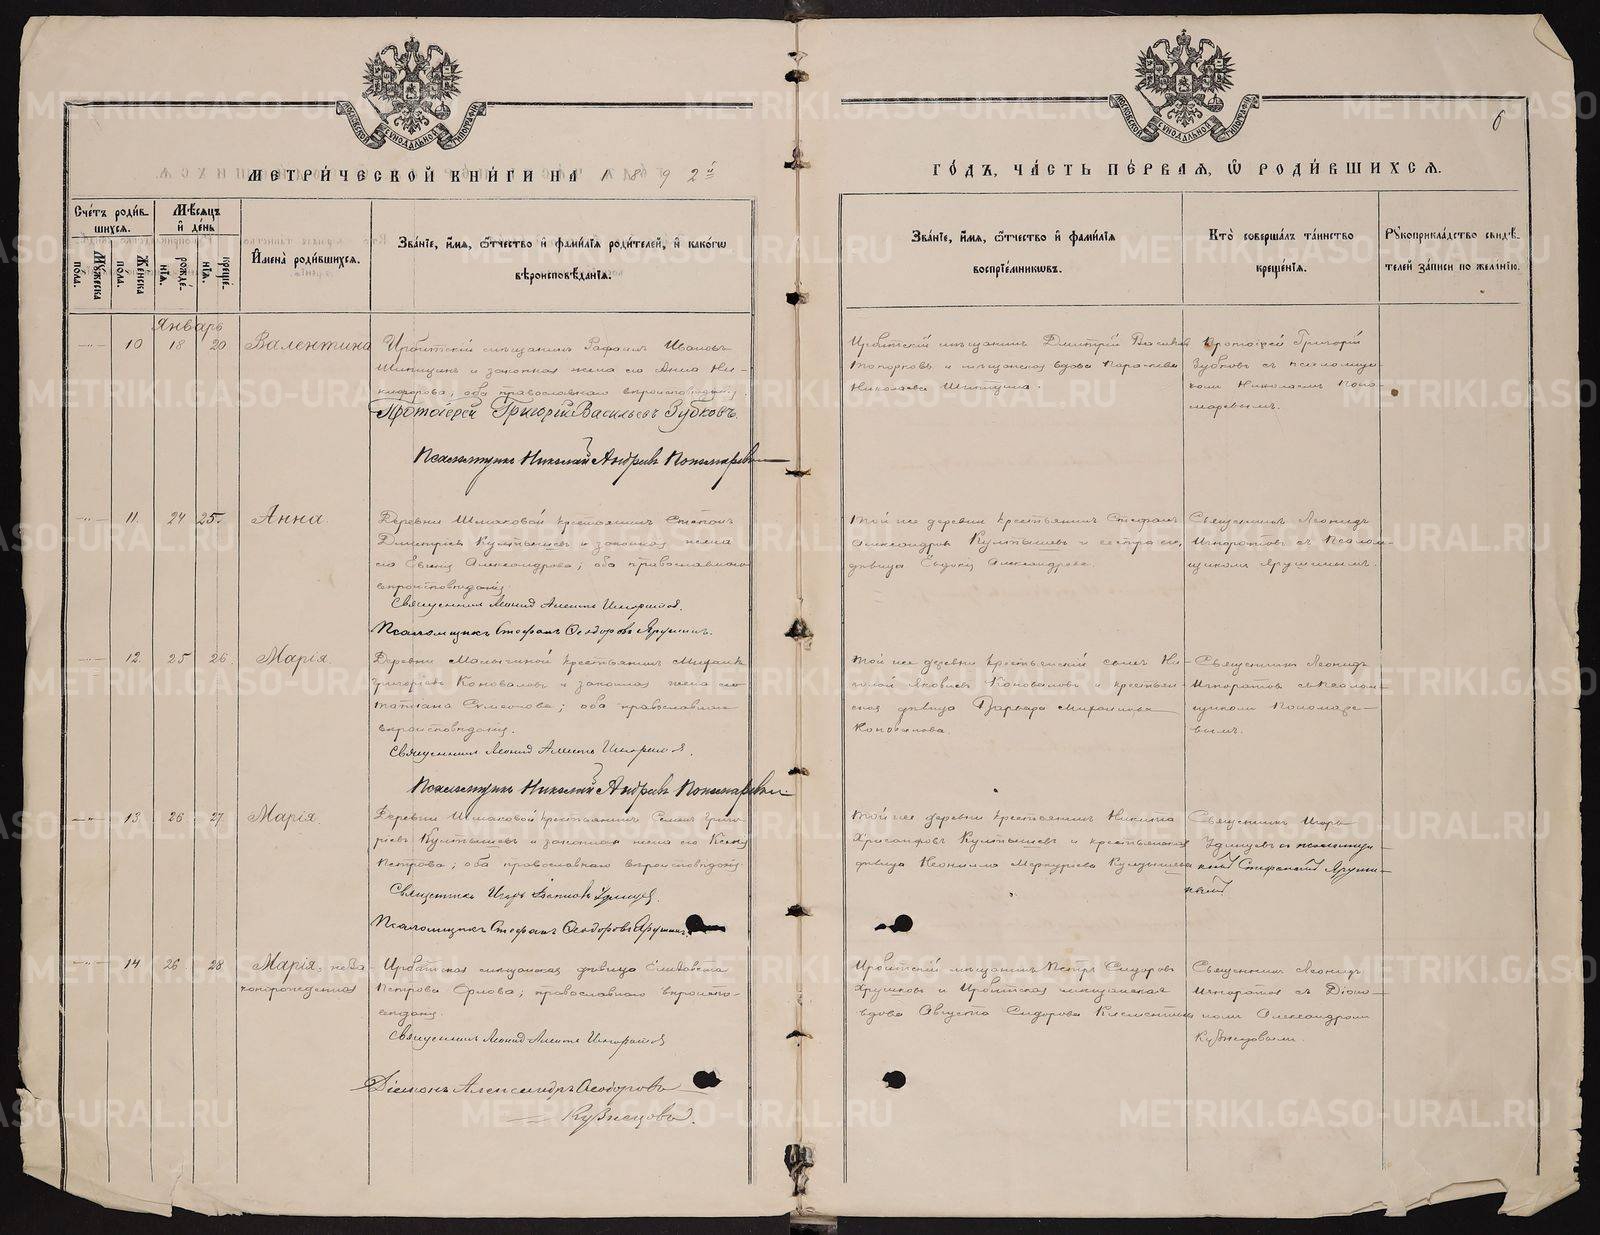 МОСКОВСКОЙ СѴНОДАЛЬНОЙ ТИПОГРАФІИ
МЕТРИ́ЧЕСКОЙ КНИ́ГИ НА 1892й
Сче́тъ роди́вшихся.
Мѣ́сяцъ и де́нь
Му́жеска по́ла.
Же́нска по́ла.
рожде́нія.
креще́нія.
И҆мена̀ роди́вшихся.
Зва́нїе, и҆́мя, ѻ҆́тчество и҆ фами́лїя роди́телей, и҆ како́гѡ
вѣроисповѣ́данїя.
Январь
10 18 20 Валентина
Ирбитскій мѣщанинъ Рафаилъ Ивановъ
Шипицинъ и законная жена его Анна Ни-
кифорова; оба православнаго вѣроисповѣданія.
Протоіерей Григорій Васильевъ Зубковъ.
Псаломщикъ Николай Андреевъ Пономаревъ
11. 24 25. Анна.
Деревни Шмаковой крестьянинъ Степанъ
Дмитріевъ Култышевъ и законная жена
его Евгенія Александрова; оба православнаго
вѣроисповѣданія.
Священникъ Леонидъ Игноратовъ.
Псаломщикъ Стефанъ Ѳеодоровъ Ярушинъ.
12. 25 26. Марія.
Деревни Мальгиной крестьянинъ Михаилъ
Григоріевъ Коноваловъ и законная жена его
Татіана Симеонова; оба православнаго
вѣроисповѣданія.
Священникъ Леонидъ Игноратовъ.
Псаломщикъ Николай Андреевъ Пономаревъ.
13. 26 27 Марія.
Деревни Шмаковой крестьянинъ Семенъ Григо-
ріевъ Култышевъ и законная жена его Ксенія
Петрова; оба православнаго вѣроисповѣданія.
Священникъ Игорь Удинцевъ.
Псаломщикъ Стефанъ Ѳеодоровъ Ярушинъ.
14 26 28 Марія, неза-
коннорожденная
Ирбитская мѣщанская дѣвица Елизавета
Петрова Орлова; православнаго вѣроиспо-
вѣданія.
Священникъ Леонидъ Игноратовъ
Діаконъ Александръ Ѳеодоровъ
Кузнецовъ.
МОСКОВСКОЙ СѴНОДАЛЬНОЙ ТИПОГРАФІИ
6
ГО́ДЪ, ЧА́СТЬ ПЕ́РВАЯ, Ѡ҆ РОДИ́ВШИХСЯ.
Зва́нїе, и҆́мя, ѻ҆́тчество и҆ фами́лїя
воспрїе́мникѡвъ.
Кто̀ соверша́лъ та́инство
креще́нїя.
Рꙋкоприкла́дство свидѣ́-
телей за́писи по жела́нїю.
Ирбитскій мѣщанинъ Дмитрій Васильевъ
Топорковъ и мѣщанская вдова Параскева
Николаева Шипицина.
Протоіерей Григорій
Зубковъ съ псаломщи-
комъ Николаемъ Поно-
маревымъ.
Той же деревни крестьянинъ Стефанъ
Александровъ Култышевъ и сестра его,
дѣвица Евдокія Александрова.
Священникъ Леонидъ
Игноратовъ съ псалом-
щикомъ Ярушинымъ.
Той же деревни крестьянскій сынъ Ни-
колай Яковлевъ Коноваловъ и крестьян-
ская дѣвица Варвара Михайлова
Коновалова.
Священникъ Леонидъ
Игноратовъ съ псалом-
щикомъ Пономаре-
вымъ.
Той же деревни крестьянинъ Никита
Хрисанфовъ Култышевъ и крестьянская
дѣвица Неонилла Меркуріева Култышева
Священникъ Игорь
Удинцевъ съ псаломщи-
комъ Стефаномъ Яруши-
нымъ
Ирбитскій мѣщанинъ Петръ Сидоровъ
Хрушковъ и Ирбитская мѣщанская
вдова Августа Сидорова
Священникъ Леонидъ
Игноратовъ съ Діако-
номъ Александромъ
Кузнецовымъ.
METRIKI.GASO-URAL.RU